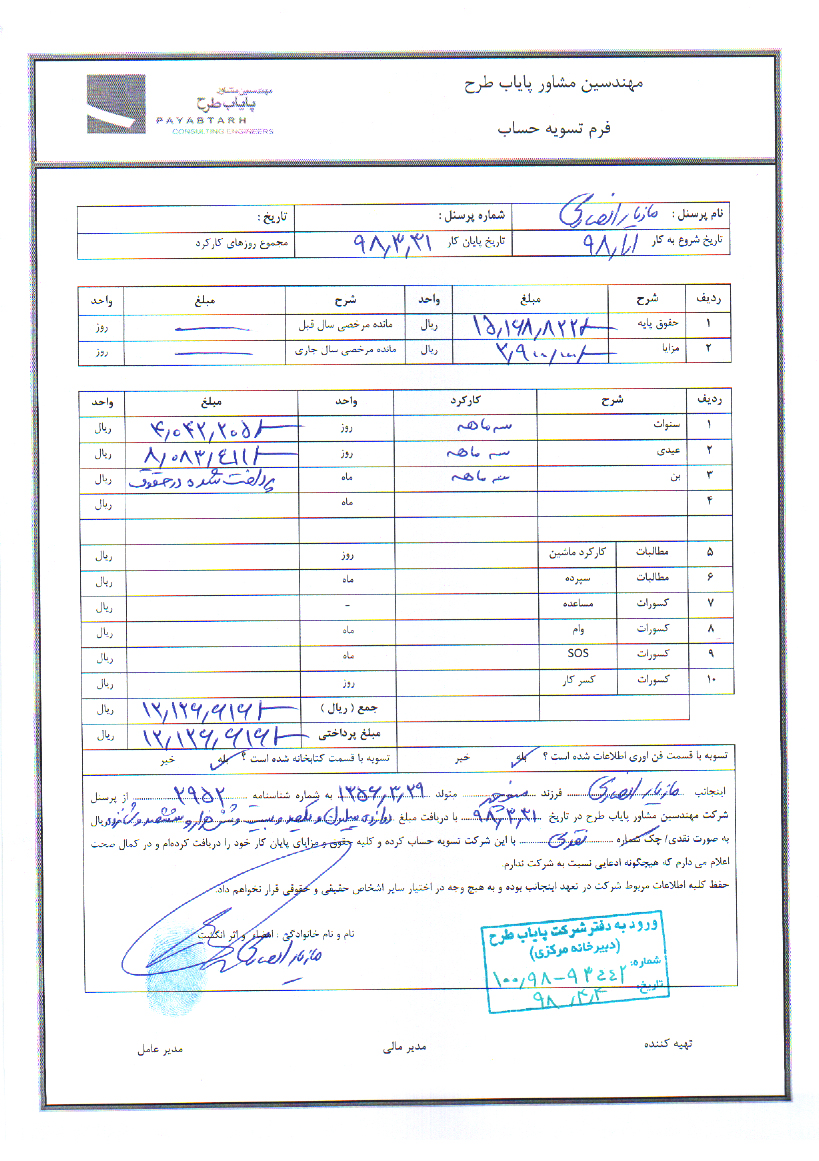 مهندسین مشاور پایاب طرح
مهندسین مشاور
پایاب طرح
PAYABTARH
CONSULTING ENGINEERS
فرم تسویه حساب
نام پرسنل : مازیار انصاری شماره پرسنل : تاریخ :
تاریخ شروع به کار ۹۸/۱/۱ تاریخ پایان کار ۹۸/۳/۳۱ مجموع روزهای کارکرد
ردیف شرح مبلغ واحد شرح مبلغ واحد
۱ حقوق پایه ریال مانده مرخصی سال قبل روز
۲ مزایا ریال مانده مرخصی سال جاری روز
ردیف شرح کارکرد واحد مبلغ واحد
۱ سنوات سه ماهه روز ۴,۰۴۲,۲۰۵ ریال
۲ عیدی سه ماهه روز ۸,۰۸۳,۴۱۱ ریال
۳ بن سه ماهه ماه پرداخت شده در حقوق ریال
۴ ماه ریال
۵ مطالبات کارکرد ماشین روز ریال
۶ مطالبات سپرده ماه ریال
۷ کسورات مساعده - ریال
۸ کسورات وام ماه ریال
۹ کسورات SOS ماه ریال
۱۰ کسورات کسر کار روز ریال
جمع ( ریال ) ۱۲,۱۲۶,۶۱۶ ریال
مبلغ پرداختی ۱۲,۱۲۶,۶۱۶ ریال
تسویه با قسمت فن اوری اطلاعات شده است ؟ بله خیر تسویه با قسمت کتابخانه شده است ؟ بله خیر
اینجانب مازیار انصاری فرزند منوچهر متولد ۱۳۵۶,۳,۲۹ به شماره شناسنامه ۲۹۵۲ از پرسنل
شرکت مهندسین مشاور پایاب طرح در تاریخ ۹۸,۳,۳۱ با دریافت مبلغ دوازده میلیون و یکصد و بیست و شش هزار و ششصد و شانزده ریال
به صورت نقدی/ چک شماره نقدی با این شرکت تسویه حساب کرده و کلیه حقوق و مزایای پایان کار خود را دریافت کرده‌ام و در کمال صحت
اعلام می دارم که هیچگونه ادعایی نسبت به شرکت ندارم.
حفظ کلیه اطلاعات مربوط شرکت در تعهد اینجانب بوده و به هیچ وجه در اختیار سایر اشخاص حقیقی و حقوقی قرار نخواهم داد.
نام و نام خانوادگی ، امضاء و اثر انگشت
مازیار انصاری
ورود به دفتر شرکت پایاب طرح
(دبیرخانه مرکزی)
شماره:
تاریخ: ۹۸/۴/۴
تهیه کننده مدیر مالی مدیر عامل